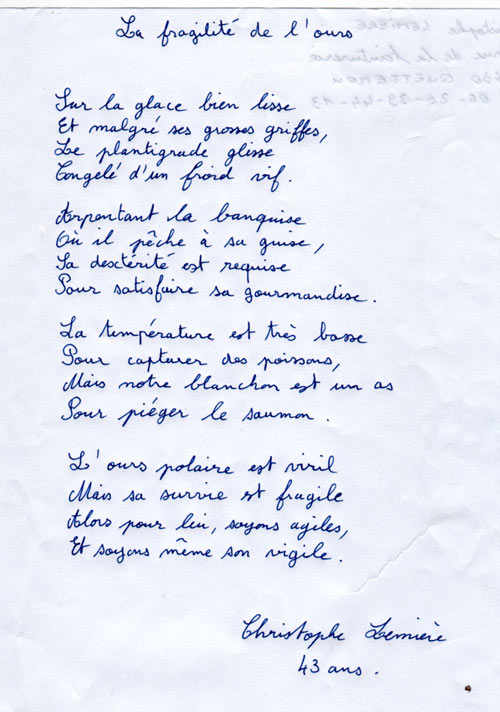 La fragilité de l'ours
Sur la glace bien lisse
Et malgré ses grosses griffes,
Le plantigrade glisse
Congelé d'un froid vif.
Arpentant la banquise
Où il pêche à sa guise,
Sa dextérité est requise
Pour satisfaire sa gourmandise.
La température est très basse
Pour capturer des poissons,
Mais notre blanchon est un as
Pour piéger le saumon.
L'ours polaire est viril
Mais sa survie est fragile
Alors pour lui, soyons agiles,
Et soyons même son vigile.
Christophe Lemière
43 ans.